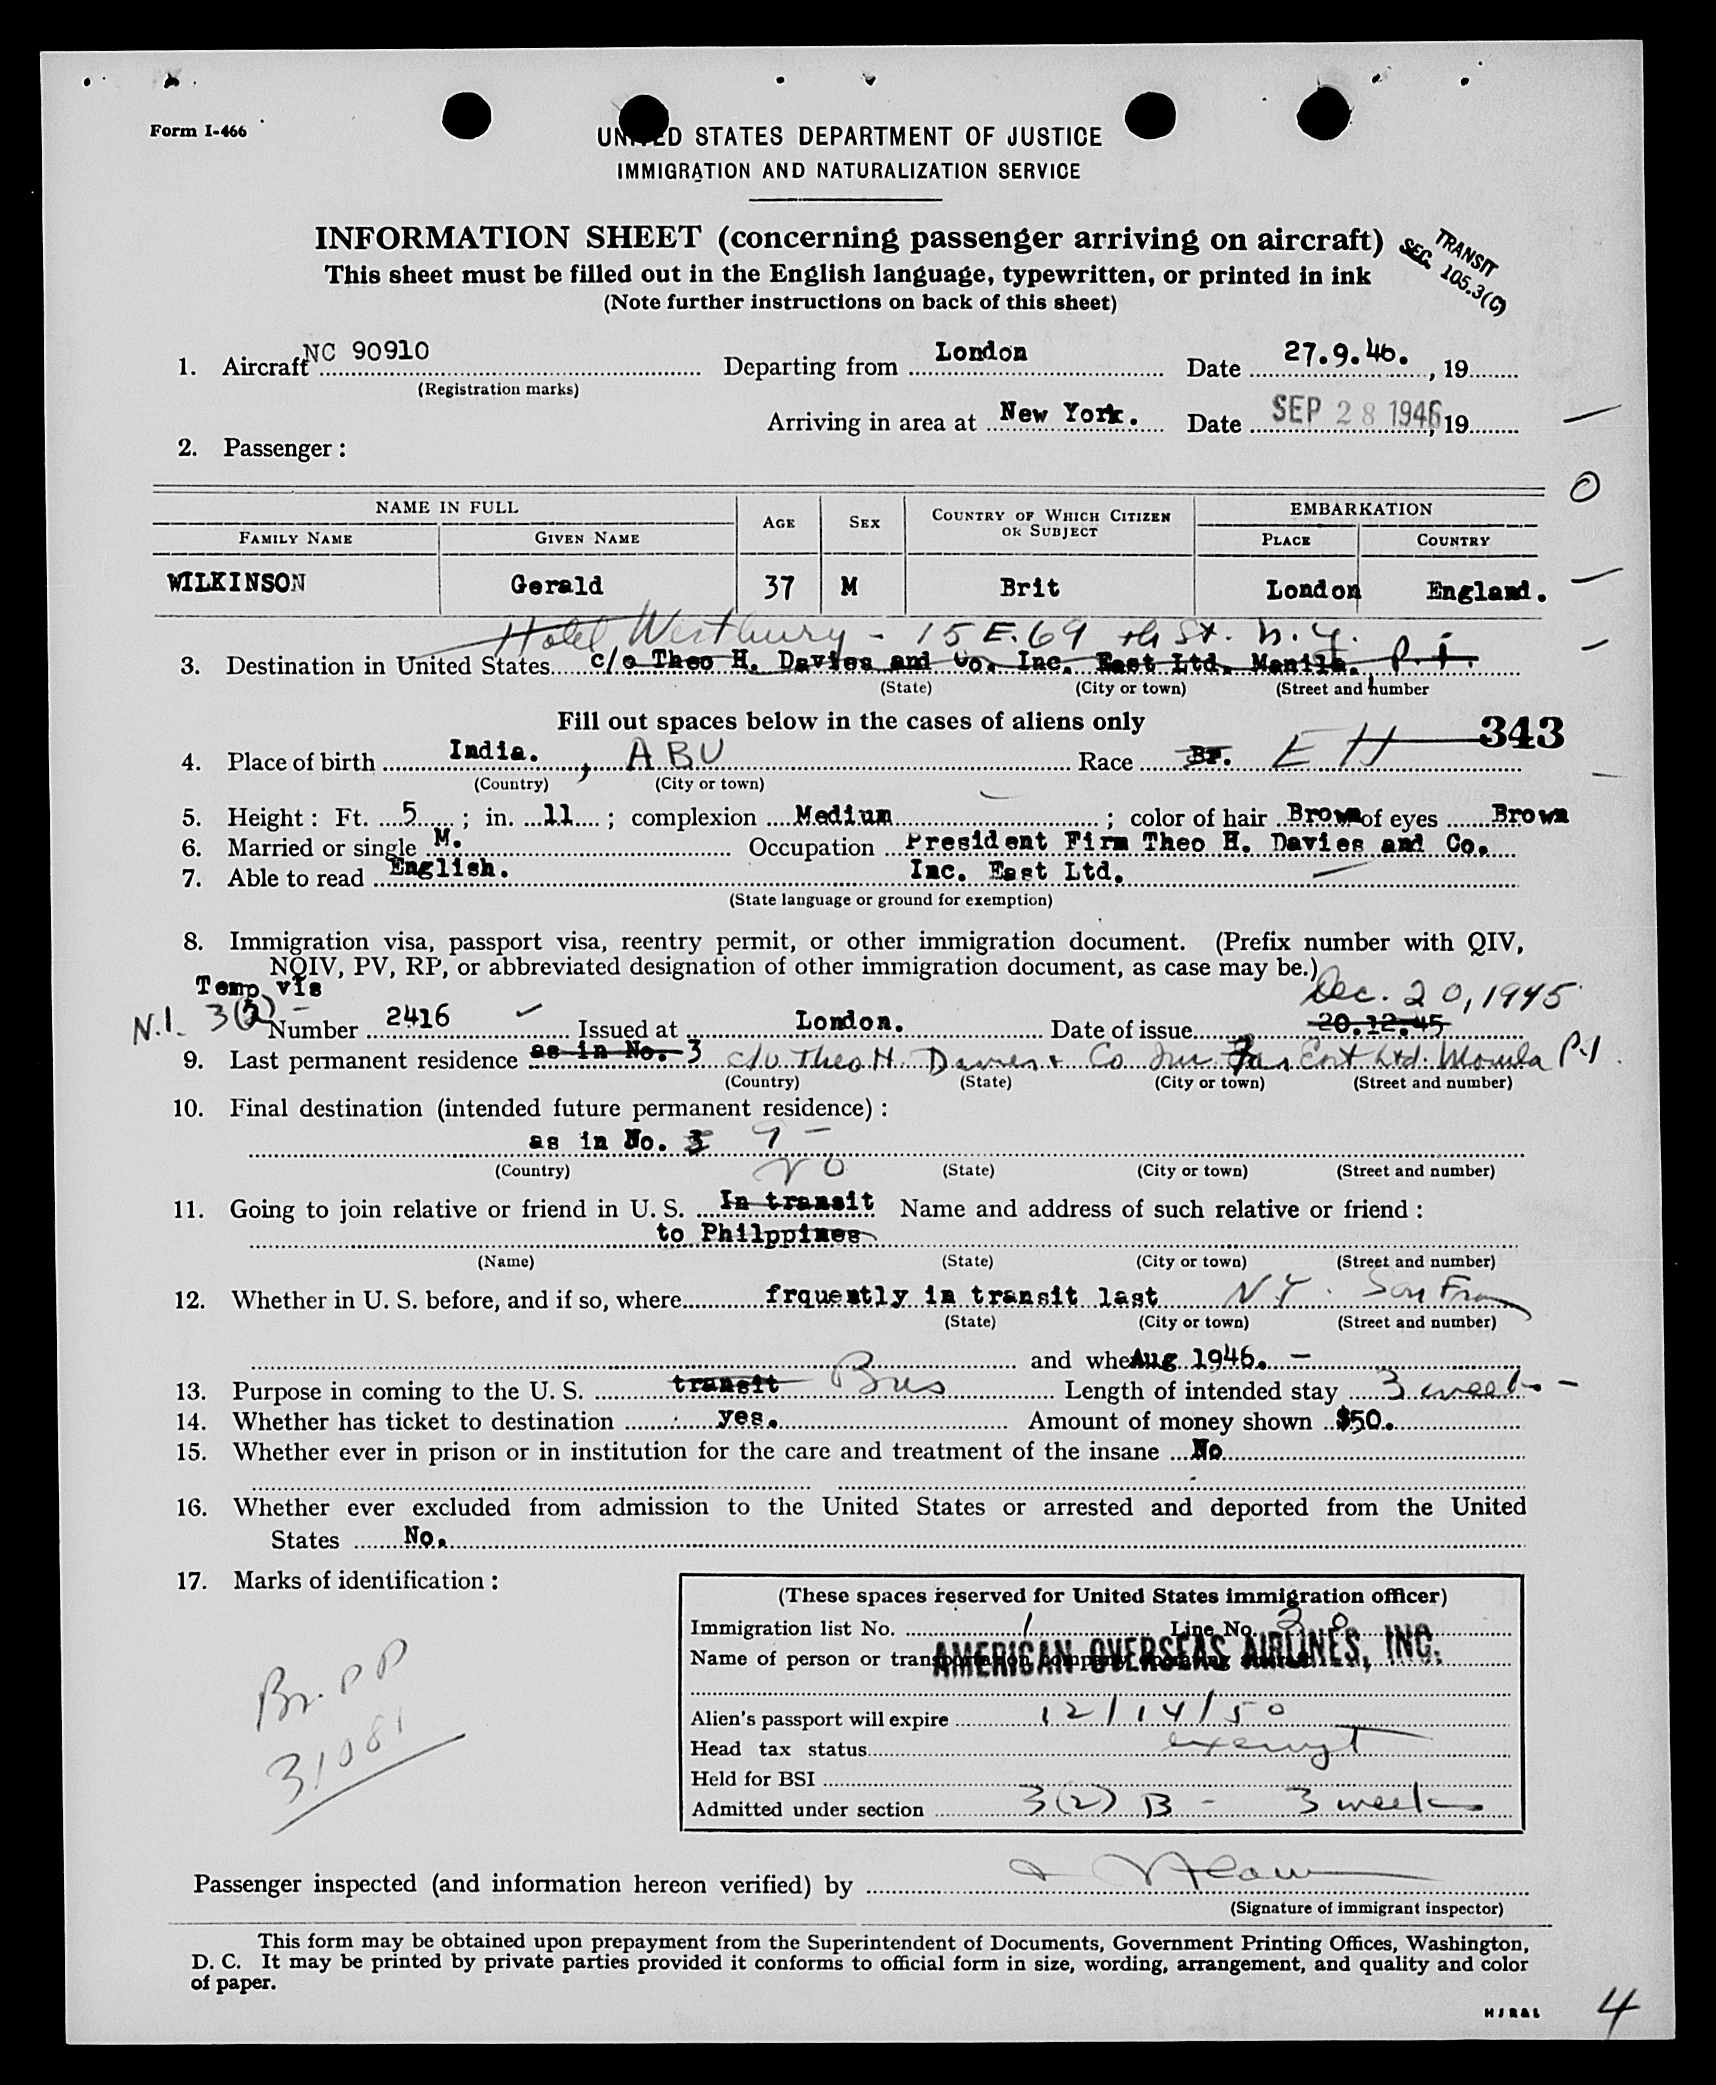 Form I-466
UNITED STATES DEPARTMENT OF JUSTICE
IMMIGRATION AND NATURALIZATION SERVICE
INFORMATION SHEET (concerning passenger arriving on aircraft)
TRANSIT
SEC. 105.3(C)
This sheet must be filled out in the English language, typewritten, or printed in ink
(Note further instructions on back of this sheet)
1. Aircraft NC 90910 Departing from London Date 27.9.46., 19
(Registration marks)
Arriving in area at New York. Date SEP 28 1946, 19
2. Passenger:
NAME IN FULL AGE SEX COUNTRY OF WHICH CITIZEN OR SUBJECT EMBARKATION
FAMILY NAME GIVEN NAME PLACE COUNTRY
WILKINSON Gerald 37 M Brit London England.
Hotel Westbury - 15 E. 69 th St. N.Y.
3. Destination in United States c/o Theo H. Davies and Co. Inc. East Ltd. Manila. P.I.
(State) (City or town) (Street and number
Fill out spaces below in the cases of aliens only
343
4. Place of birth India., ABU Race Br. EH
(Country) (City or town)
5. Height: Ft. 5; in. 11; complexion Medium; color of hair Brown of eyes Brown
6. Married or single M. Occupation President Firm Theo H. Davies and Co.
7. Able to read English. Inc. East Ltd.
(State language or ground for exemption)
8. Immigration visa, passport visa, reentry permit, or other immigration document. (Prefix number with QIV,
NQIV, PV, RP, or abbreviated designation of other immigration document, as case may be.)
Temp vis
Dec. 20, 1945
N.I. 3(2) - Number 2416 Issued at London. Date of issue 20.12.45
9. Last permanent residence as in No. 3 c/o Theo H. Davies + Co Inc East Ltd. Manila P.I.
(Country) (State) (City or town) (Street and number)
10. Final destination (intended future permanent residence):
as in No. 3 9 -
(Country) (State) (City or town) (Street and number)
no
11. Going to join relative or friend in U. S. In transit Name and address of such relative or friend:
to Philppines
(Name) (State) (City or town) (Street and number)
12. Whether in U. S. before, and if so, where frquently in transit last N.Y. San Fran
(State) (City or town) (Street and number)
and whe Aug 1946. -
13. Purpose in coming to the U. S. transit Bus Length of intended stay 3 weeks -
14. Whether has ticket to destination yes. Amount of money shown $50.
15. Whether ever in prison or in institution for the care and treatment of the insane No
16. Whether ever excluded from admission to the United States or arrested and deported from the United
States No.
17. Marks of identification:
(These spaces reserved for United States immigration officer)
Immigration list No. 1 Line No. 20
Name of person or transportation company operating
AMERICAN OVERSEAS AIRLINES, INC.
Alien's passport will expire 12/14/50
Head tax status exempt
Held for BSI
Admitted under section 3(2) B - 3 weeks
Br. PP
31081
Passenger inspected (and information hereon verified) by
(Signature of immigrant inspector)
This form may be obtained upon prepayment from the Superintendent of Documents, Government Printing Offices, Washington,
D. C. It may be printed by private parties provided it conforms to official form in size, wording, arrangement, and quality and color
of paper.
4